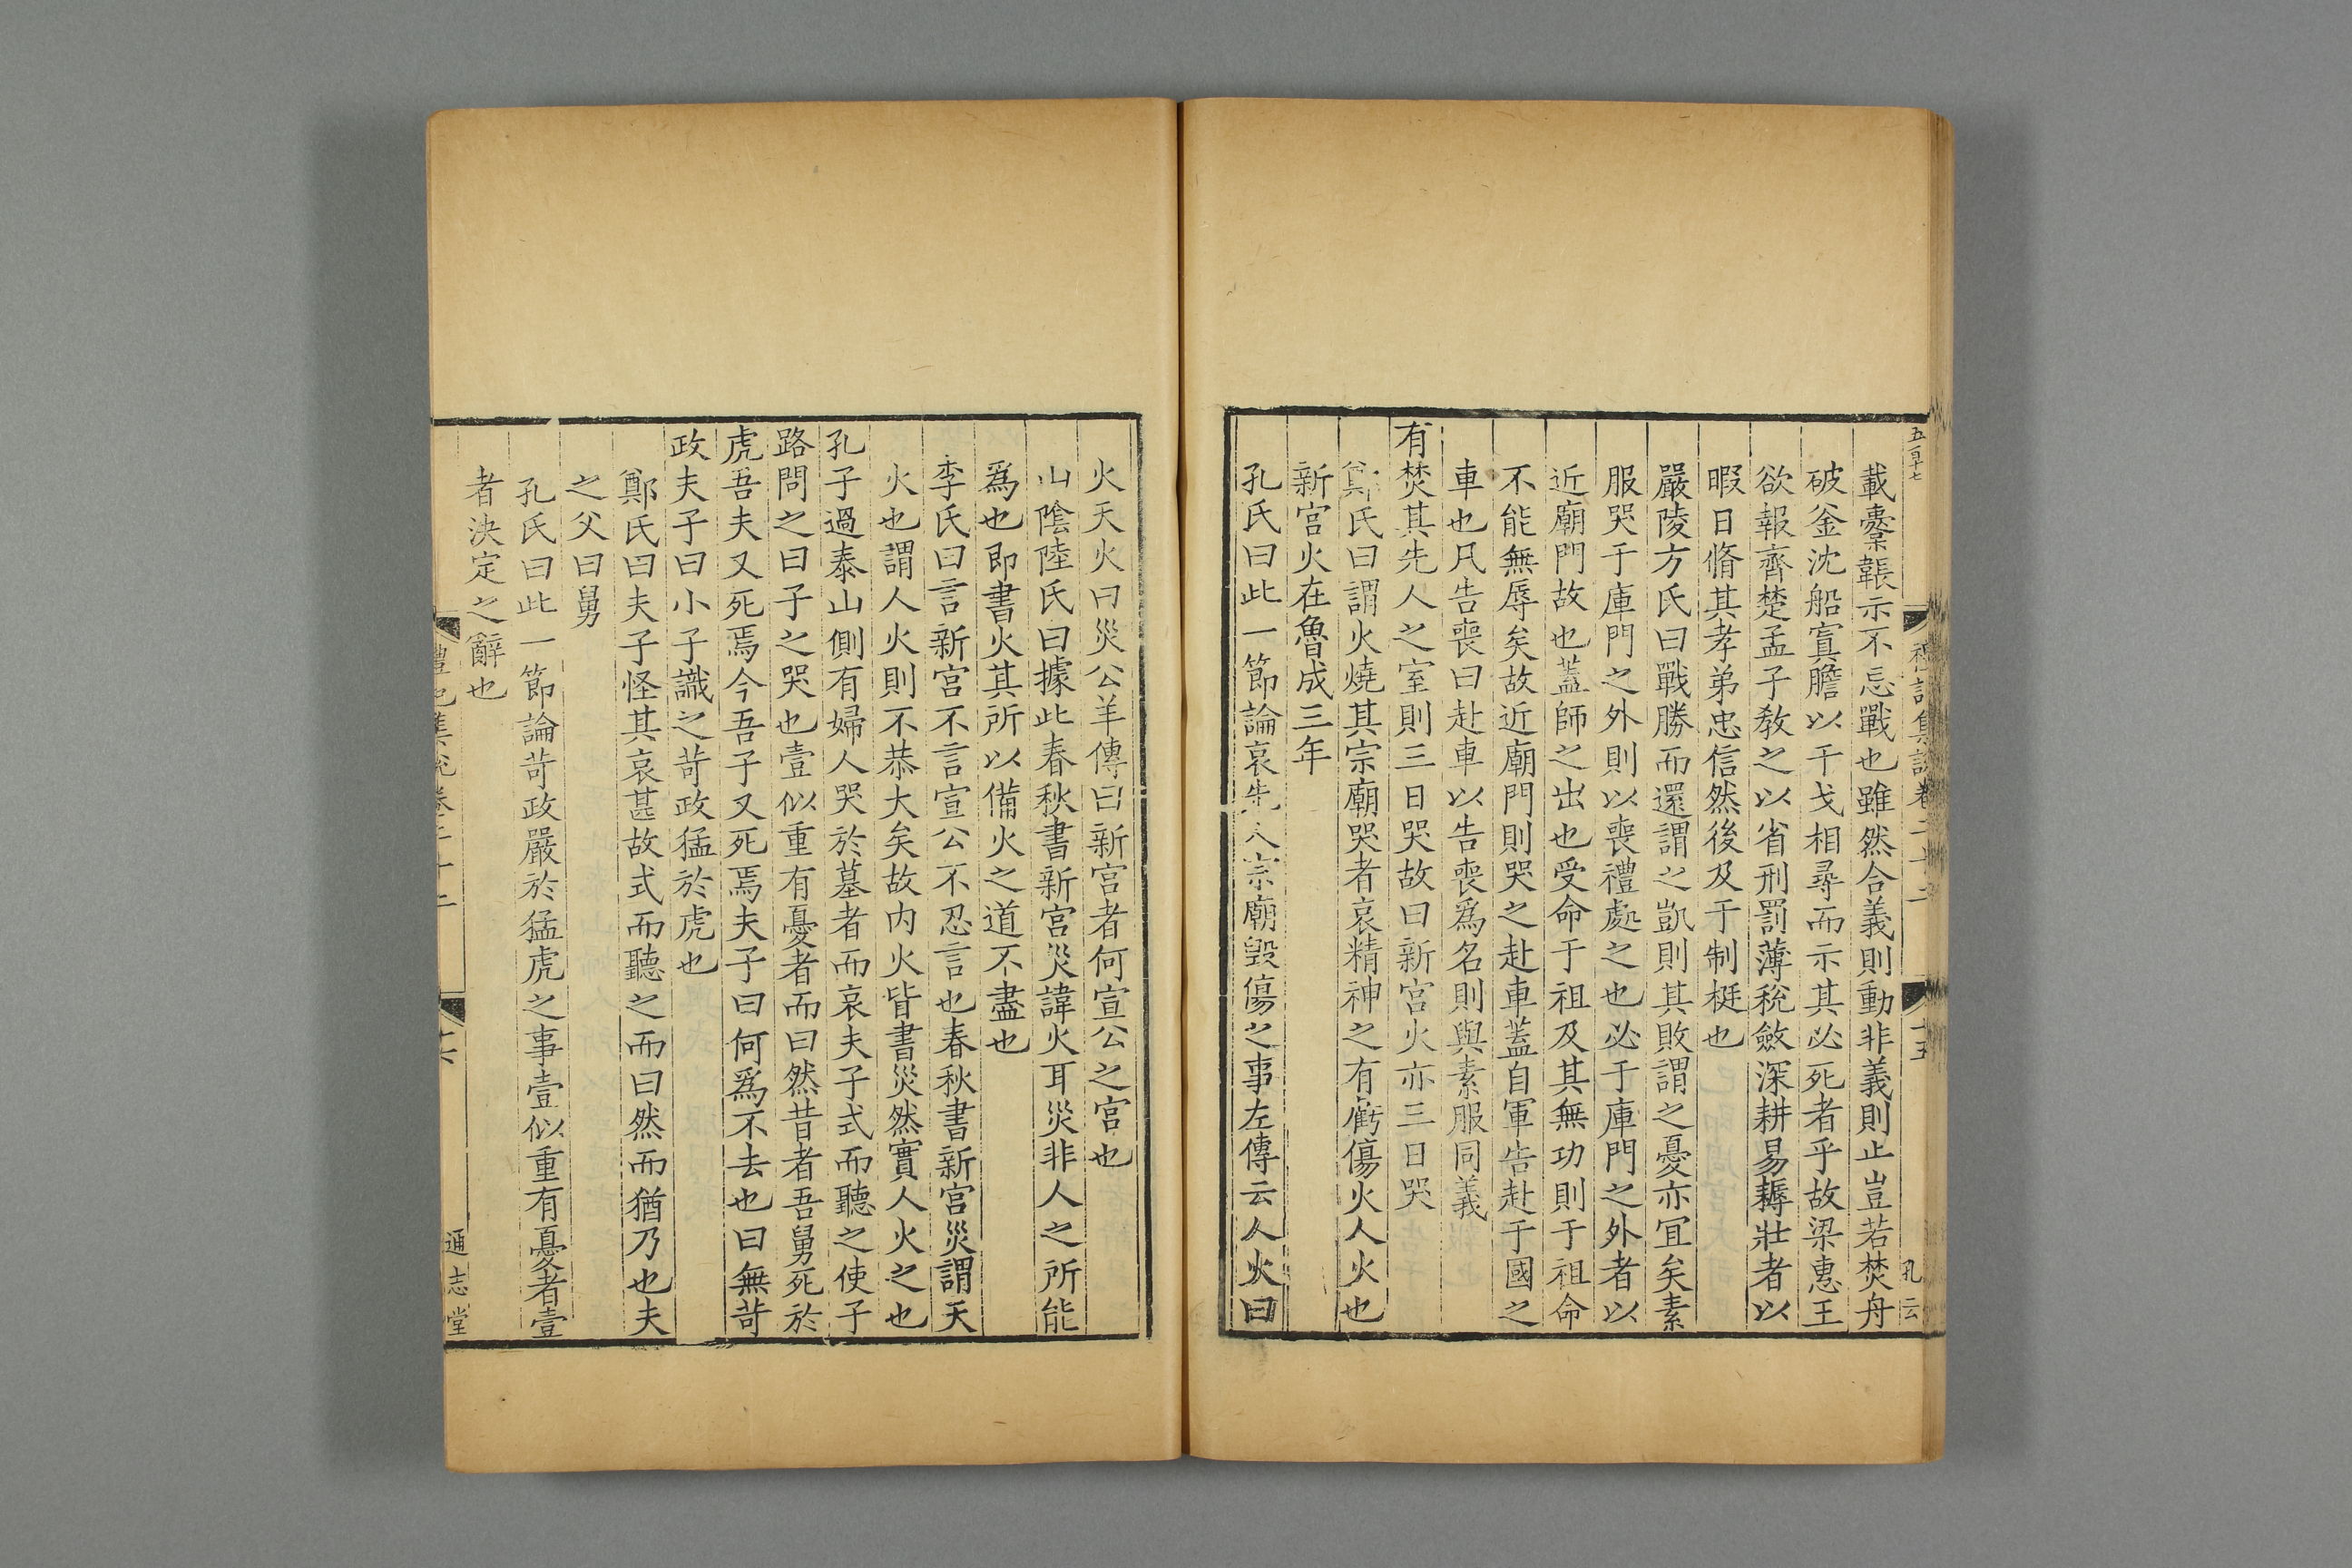 五百十七
禮記集說卷二十二
十五
孔云
載櫜韔示不忘戰也雖然合義則動非義則止豈若焚舟
破釜沈船寘膽以干戈相尋而示其必死者乎故梁惠王
欲報齊楚孟子教之以省刑罰薄稅斂深耕易耨壯者以
暇日脩其孝弟忠信然後及于制梃也
嚴陵方氏曰戰勝而還謂之凱則其敗謂之憂亦宜矣素
服哭于庫門之外則以喪禮處之也必于庫門之外者以
近廟門故也蓋師之出也受命于祖及其無功則于祖命
不能無辱矣故近廟門則哭之赴車蓋自軍告赴于國之
車也凡告喪曰赴車以告喪爲名則與素服同義
有焚其先人之室則三日哭故曰新宮火亦三日哭
鄭氏曰謂火燒其宗廟哭者哀精神之有虧傷火人火也
新宮火在魯成三年
孔氏曰此一節論哀先人宗廟毀傷之事左傳云人火曰
火天火曰災公羊傳曰新宮者何宣公之宮也
山陰陸氏曰據此春秋書新宮災諱火耳災非人之所能
爲也即書火其所以備火之道不盡也
李氏曰言新宮不言宣公不忍言也春秋書新宮災謂天
火也謂人火則不恭大矣故内火皆書災然實人火之也
孔子過泰山側有婦人哭於墓者而哀夫子式而聽之使子
路問之曰子之哭也壹似重有憂者而曰然昔者吾舅死於
虎吾夫又死焉今吾子又死焉夫子曰何爲不去也曰無苛
政夫子曰小子識之苛政猛於虎也
鄭氏曰夫子怪其哀甚故式而聽之而曰然而猶乃也夫
之父曰舅
孔氏曰此一節論苛政嚴於猛虎之事壹似重有憂者壹
者決定之辭也
禮記集說卷二十二
十六
通志堂